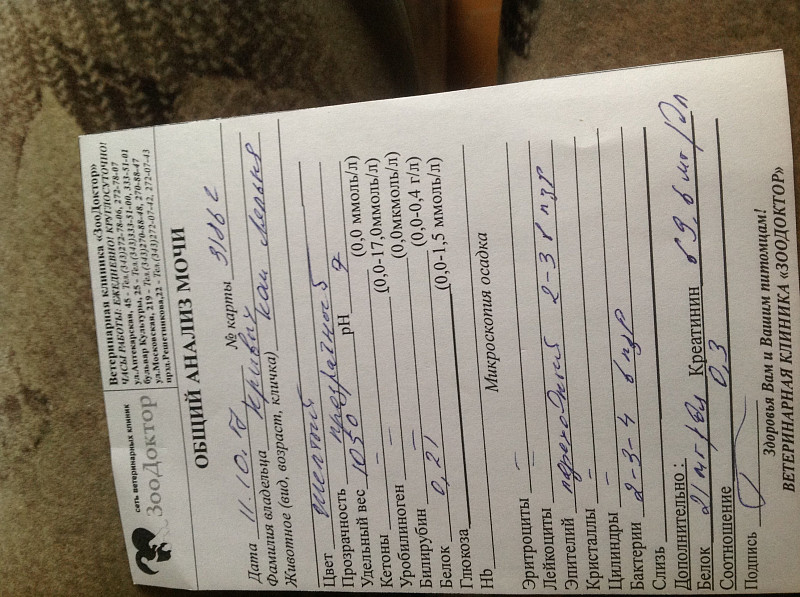 сеть ветеринарных клиник
ЗооДоктор
Ветеринарная клиника «ЗооДоктор»
ЧАСЫ РАБОТЫ: ЕЖЕДНЕВНО! КРУГЛОСУТОЧНО!
ул.Аптекарская, 45 - Тел.(343)272-78-06, 272-78-07
бульвар Культуры, 25 - Тел.(343)333-51-00, 333-51-01
ул.Московская, 219 - Тел.(343)270-88-48, 270-88-47
пр.Решетникова,22 - Тел.(343)272-07-42, 272-07-43
ОБЩИЙ АНАЛИЗ МОЧИ
Дата 11.10. № карты
Фамилия владельца Кривых
Животное (вид, возраст, кличка) кот
Цвет желтый
Прозрачность прозрачность
Удельный вес 1050 pH 7
Кетоны – (0,0 ммоль/л)
Уробилиноген – (0,0-17,0ммоль/л)
Билирубин – (0,0мкмоль/л)
Белок 0,21 (0,0-0,4 г/л)
Глюкоза (0,0-1,5 ммоль/л)
Hb
Микроскопия осадка
Эритроциты –
Лейкоциты –
Эпителий переходный 2-3 в п/зр
Кристаллы –
Цилиндры –
Бактерии 2-3-4 в п/зр
Слизь
Дополнительно:
Белок 21 мг/дл Креатинин 69,6 мг/дл
Соотношение 0,3
Подпись
Здоровья Вам и Вашим питомцам!
ВЕТЕРИНАРНАЯ КЛИНИКА «ЗООДОКТОР»